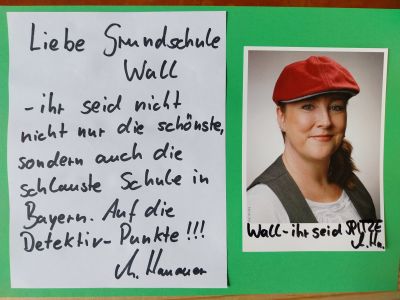 Liebe Grundschule
Wall
- ihr seid nicht
nicht nur die schönste,
sondern auch die
schlauste Schule in
Bayern. Auf die
Detektiv-Punkte!!!
Wall - ihr seid SPITZE